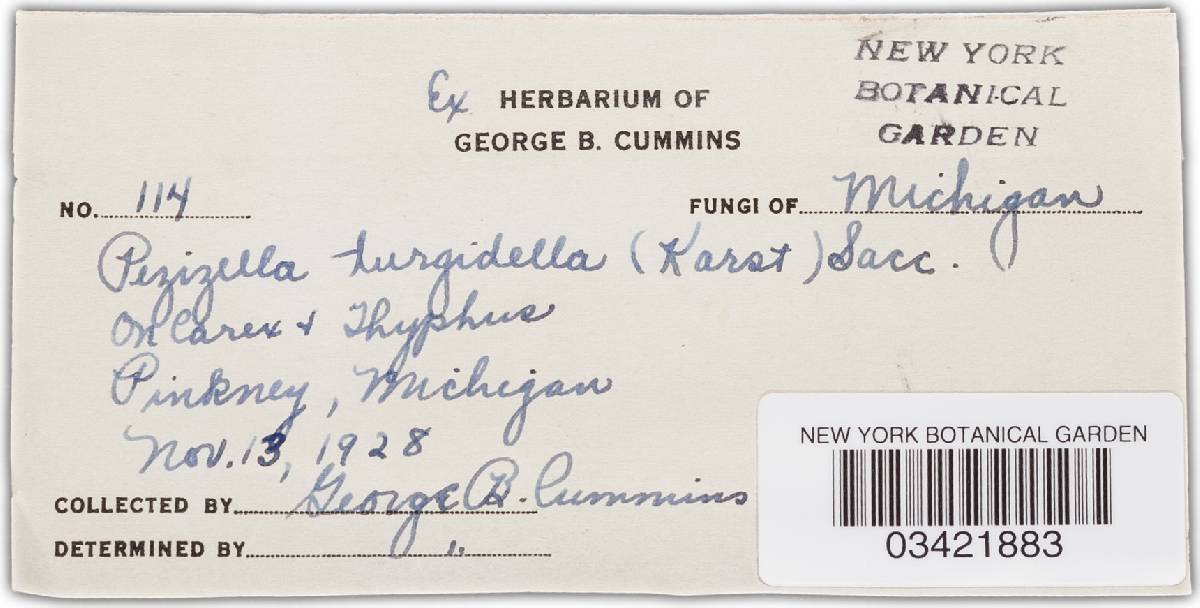 NEW YORK
BOTANICAL
GARDEN
Ex HERBARIUM OF
GEORGE B. CUMMINS
NO. 114
FUNGI OF Michigan
Pezizella turgidella (Karst) Sacc.
On Carex + Thyphus
Pinkney, Michigan
Nov. 13, 1928
COLLECTED BY George B. Cummins
DETERMINED BY ".
NEW YORK BOTANICAL GARDEN
03421883